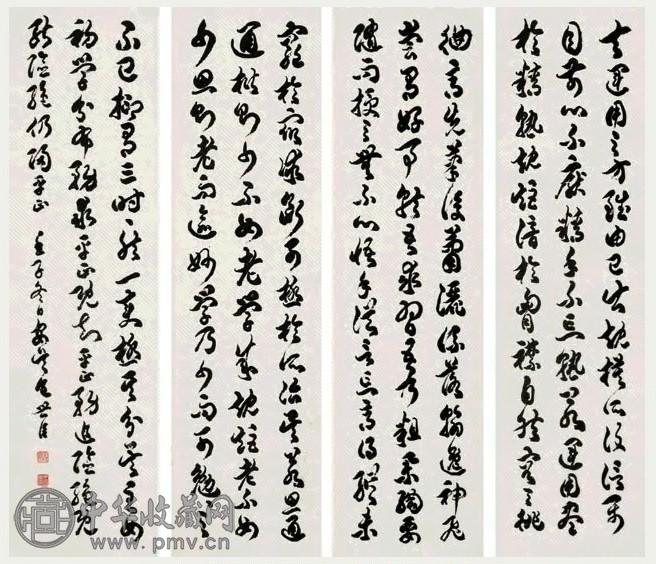 夫運用之方雖由己出規模所設信屬
目前心不厭精手不忘熟若運用盡
於精熟規矩諳於胸襟自然容與徘
徊意先筆後蕭灑流落翰逸神飛
嘗有好事就吾求習吾乃粗舉綱要
隨而授之無不心悟手從言忘意得縱未
窺於眾術斷可極於所詣矣若思通
通楷則少不如老學成規矩老不如
少思則老而逾妙學乃少而可勉勉之
不已抑有三時時然一變極其分矣至如
初學分布務求平正既知平正務追險絕既
能險絕仍歸平正 壬子冬日安吳包世臣
中华收藏网
www.pmv.cn